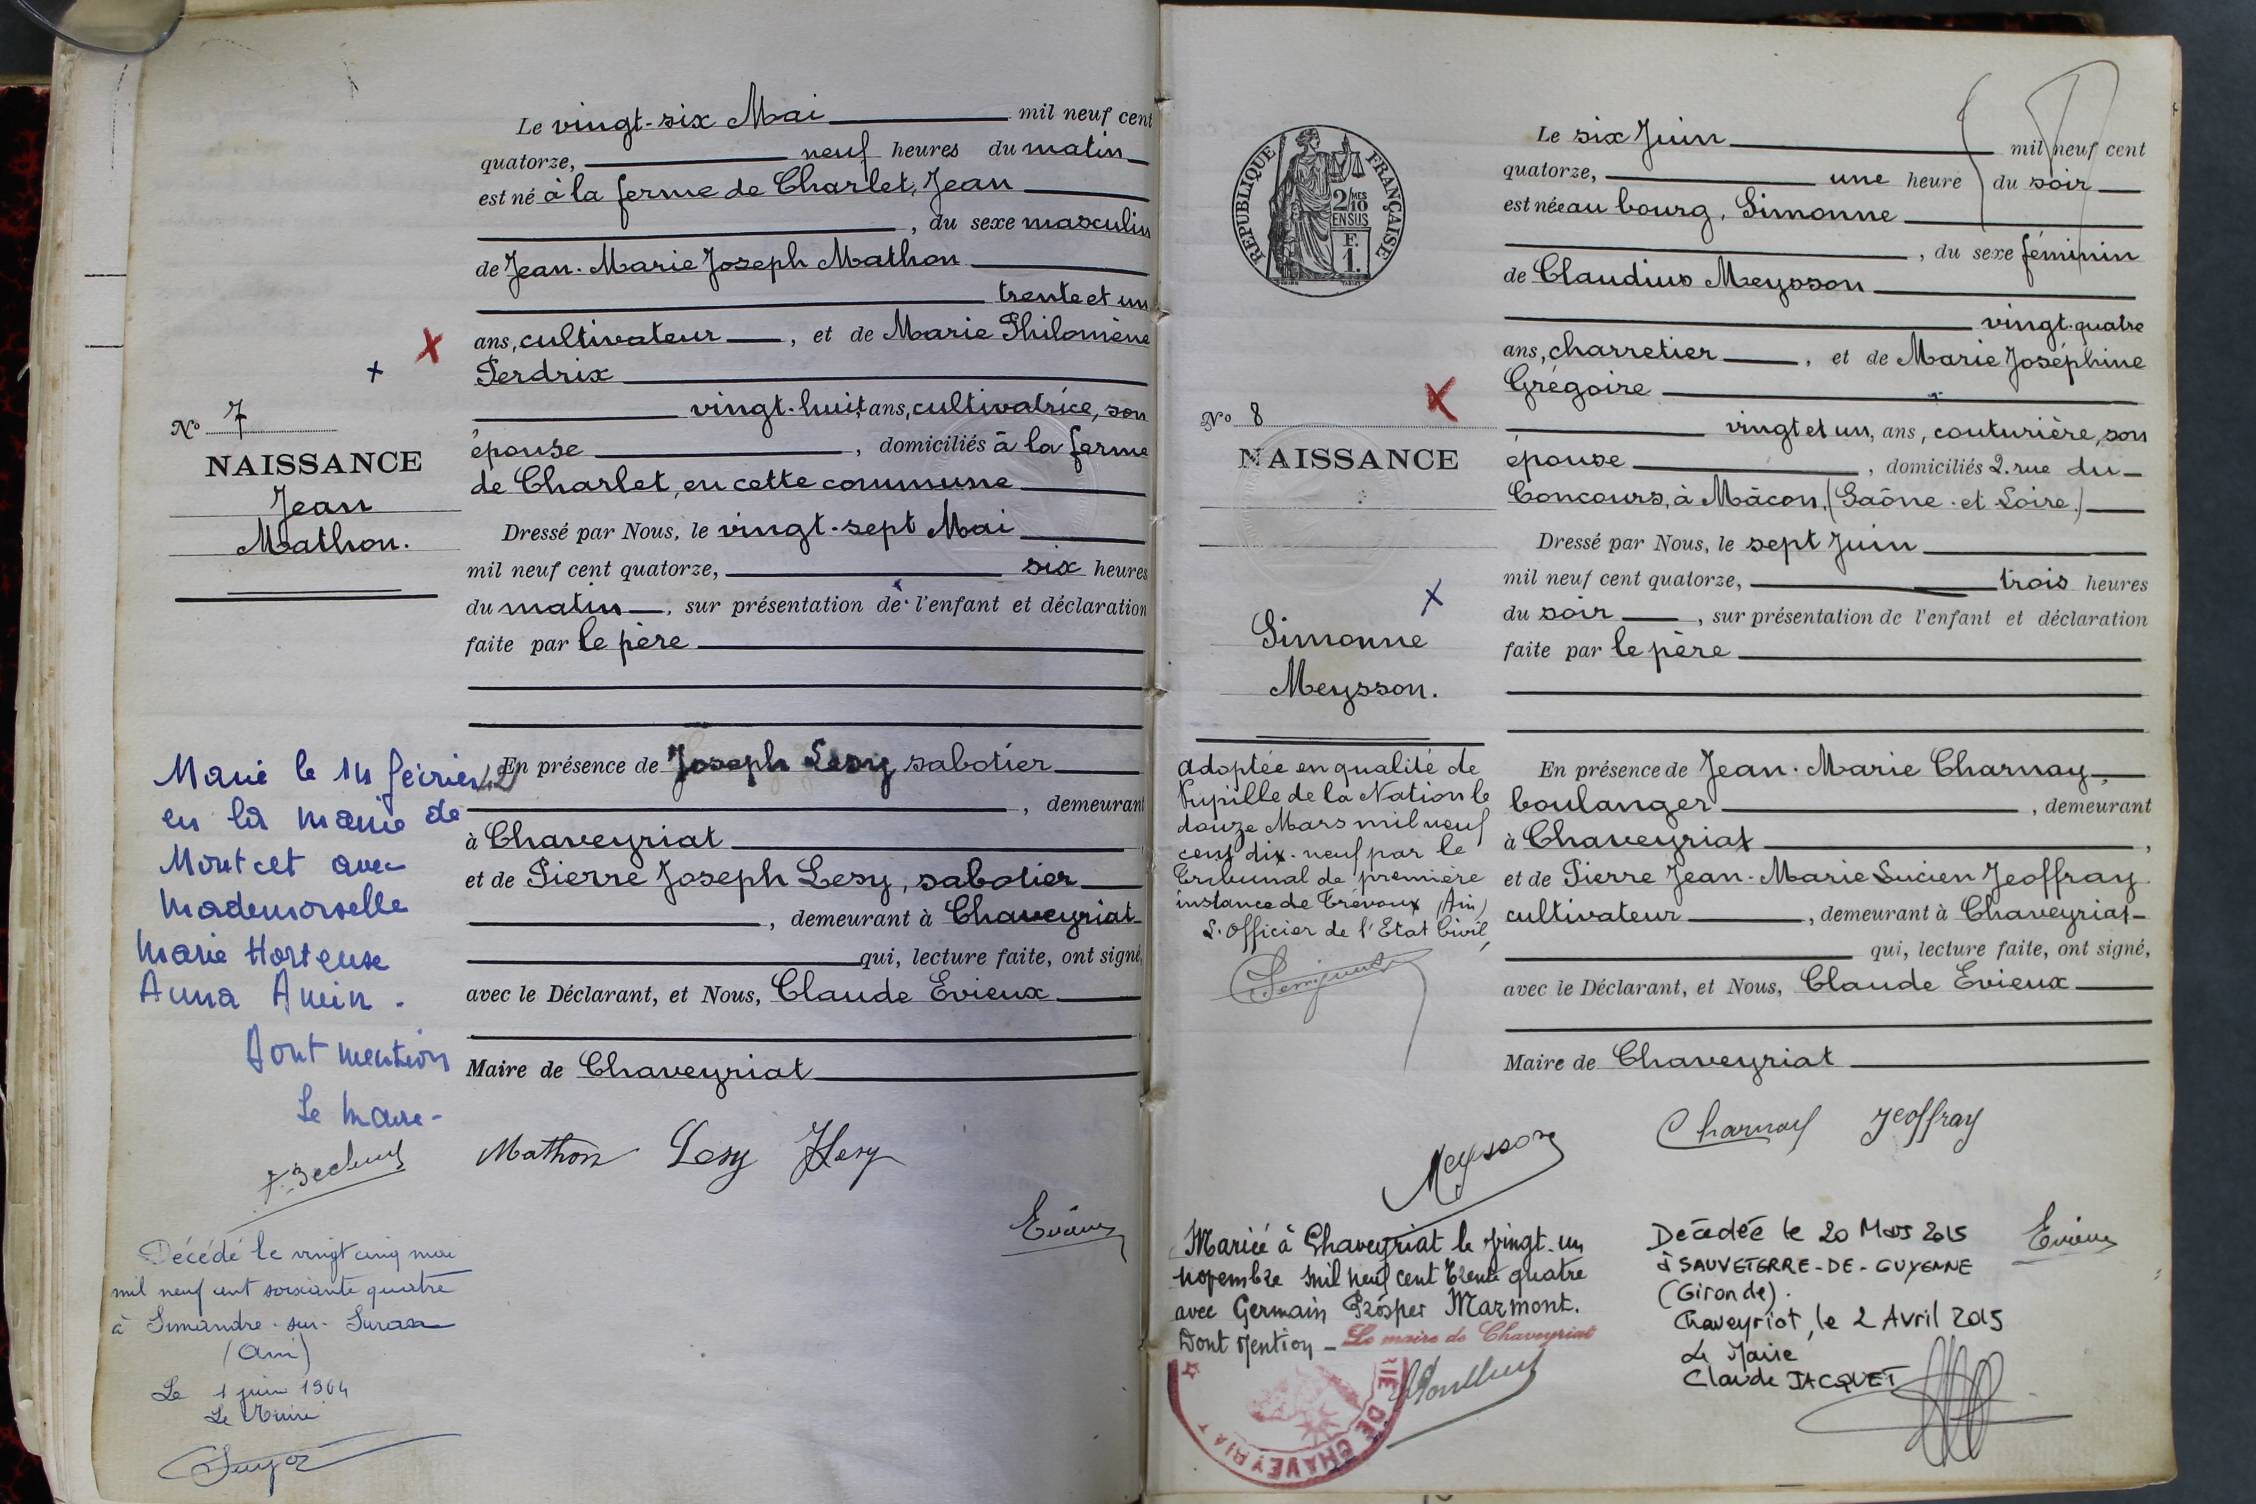 Le vingt-six Mai mil neuf cent
quatorze, neuf heures du matin
est né à la ferme de Charlet, Jean
, du sexe masculin
de Jean-Marie Joseph Mathon
trente et un
ans, cultivateur, et de Marie Philomène
Perdrix
vingt-huit ans, cultivatrice, son
épouse, domiciliés à la ferme
de Charlet, en cette commune
Dressé par Nous, le vingt-sept Mai
mil neuf cent quatorze, six heures
du matin, sur présentation de l'enfant et déclaration
faite par le père
En présence de Joseph Lesy sabotier
, demeurant
à Chaveyriat
et de Pierre Joseph Lesy, sabotier
, demeurant à Chaveyriat
qui, lecture faite, ont signé,
avec le Déclarant, et Nous, Claude Evieux
Maire de Chaveyriat
Mathon Lesy JLesy
Evieux
No 7
NAISSANCE
Jean
Mathon.
Marié le 14 février 42
en la mairie de
Montcet avec
Mademoiselle
Marie Hortense
Anna
Dont mention
Le Maire-
Décédé le vingt cinq mai
mil neuf cent soixante quatre
à Simandre-sur-Suran
(Ain)
Le 1 juin 1964
Le Maire
REPUBLIQUE FRANÇAISE
2/MES
10
EN SUS
F.
1.
Le six Juin mil neuf cent
quatorze, une heure du soir
est née au bourg, Simonne
, du sexe féminin
de Claudius Meysson
vingt-quatre
ans, charretier, et de Marie Joséphine
Grégoire
vingt et un, ans, couturière, son
épouse, domiciliés 2. rue du
Concours, à Mâcon, (Saône-et-Loire)
Dressé par Nous, le sept Juin
mil neuf cent quatorze, trois heures
du soir, sur présentation de l'enfant et déclaration
faite par le père
En présence de Jean-Marie Charnay,
boulanger, demeurant
à Chaveyriat,
et de Pierre Jean-Marie Lucien Jeoffray
cultivateur, demeurant à Chaveyriat
qui, lecture faite, ont signé,
avec le Déclarant, et Nous, Claude Evieux
Maire de Chaveyriat
Charnay Jeoffray
Meysson
Evieux
No 8
NAISSANCE
Simonne
Meysson.
Adoptée en qualité de
Pupille de la Nation le
douze Mars mil neuf
cent dix-neuf par le
Tribunal de première
instance de Trévoux (Ain)
L'Officier de l'Etat Civil,
Mariée à Chaveyriat le vingt-un
novembre mil neuf cent trente quatre
avec Germain Prosper Marmont.
Dont Mention - Le maire de Chaveyriat
DE CHAVEYRIAT
Décédée le 20 Mars 2015
à SAUVETERRE-DE-GUYENNE
(Gironde).
Chaveyriat, le 2 Avril 2015
Le Maire
Claude JACQUET